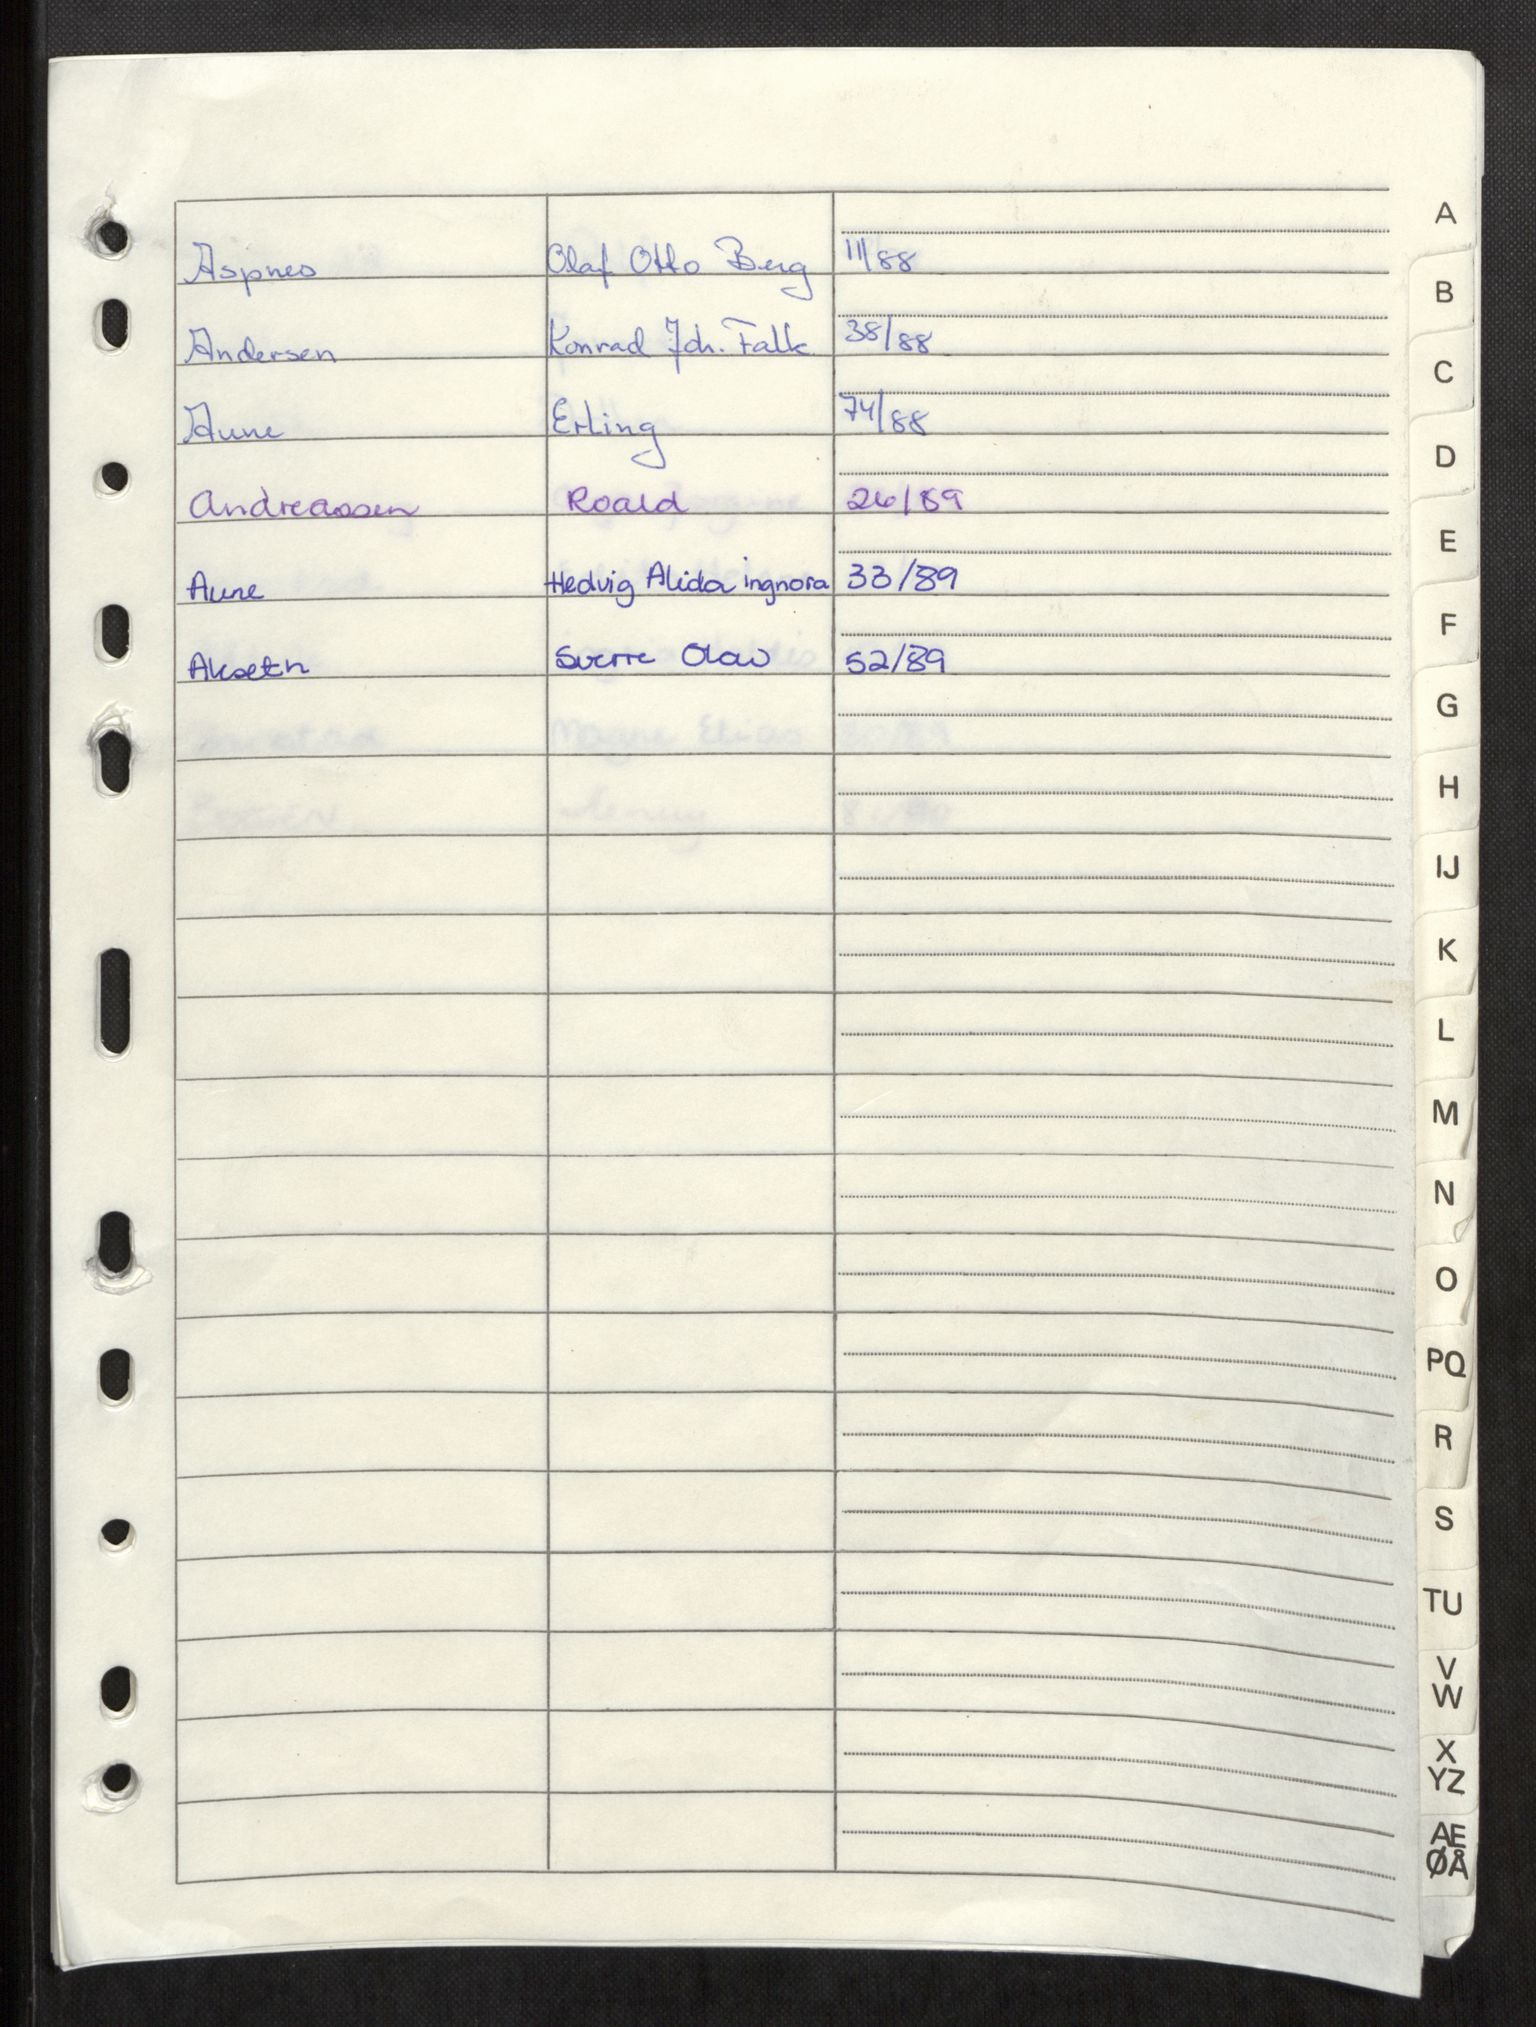 Aspnes Olaf Otto Berg 11/88
Andersen Konrad Joh. Falk 38/88
Aune Erling 74/88
Andreassen Roald 26/89
Aune Hedvig Alida ingnora 33/89
Akseth Sverre Olav 52/89
A
B
C
D
E
F
G
H
IJ
K
L
M
N
O
PQ
R
S
TU
V
W
X
YZ
AE
ØÅ